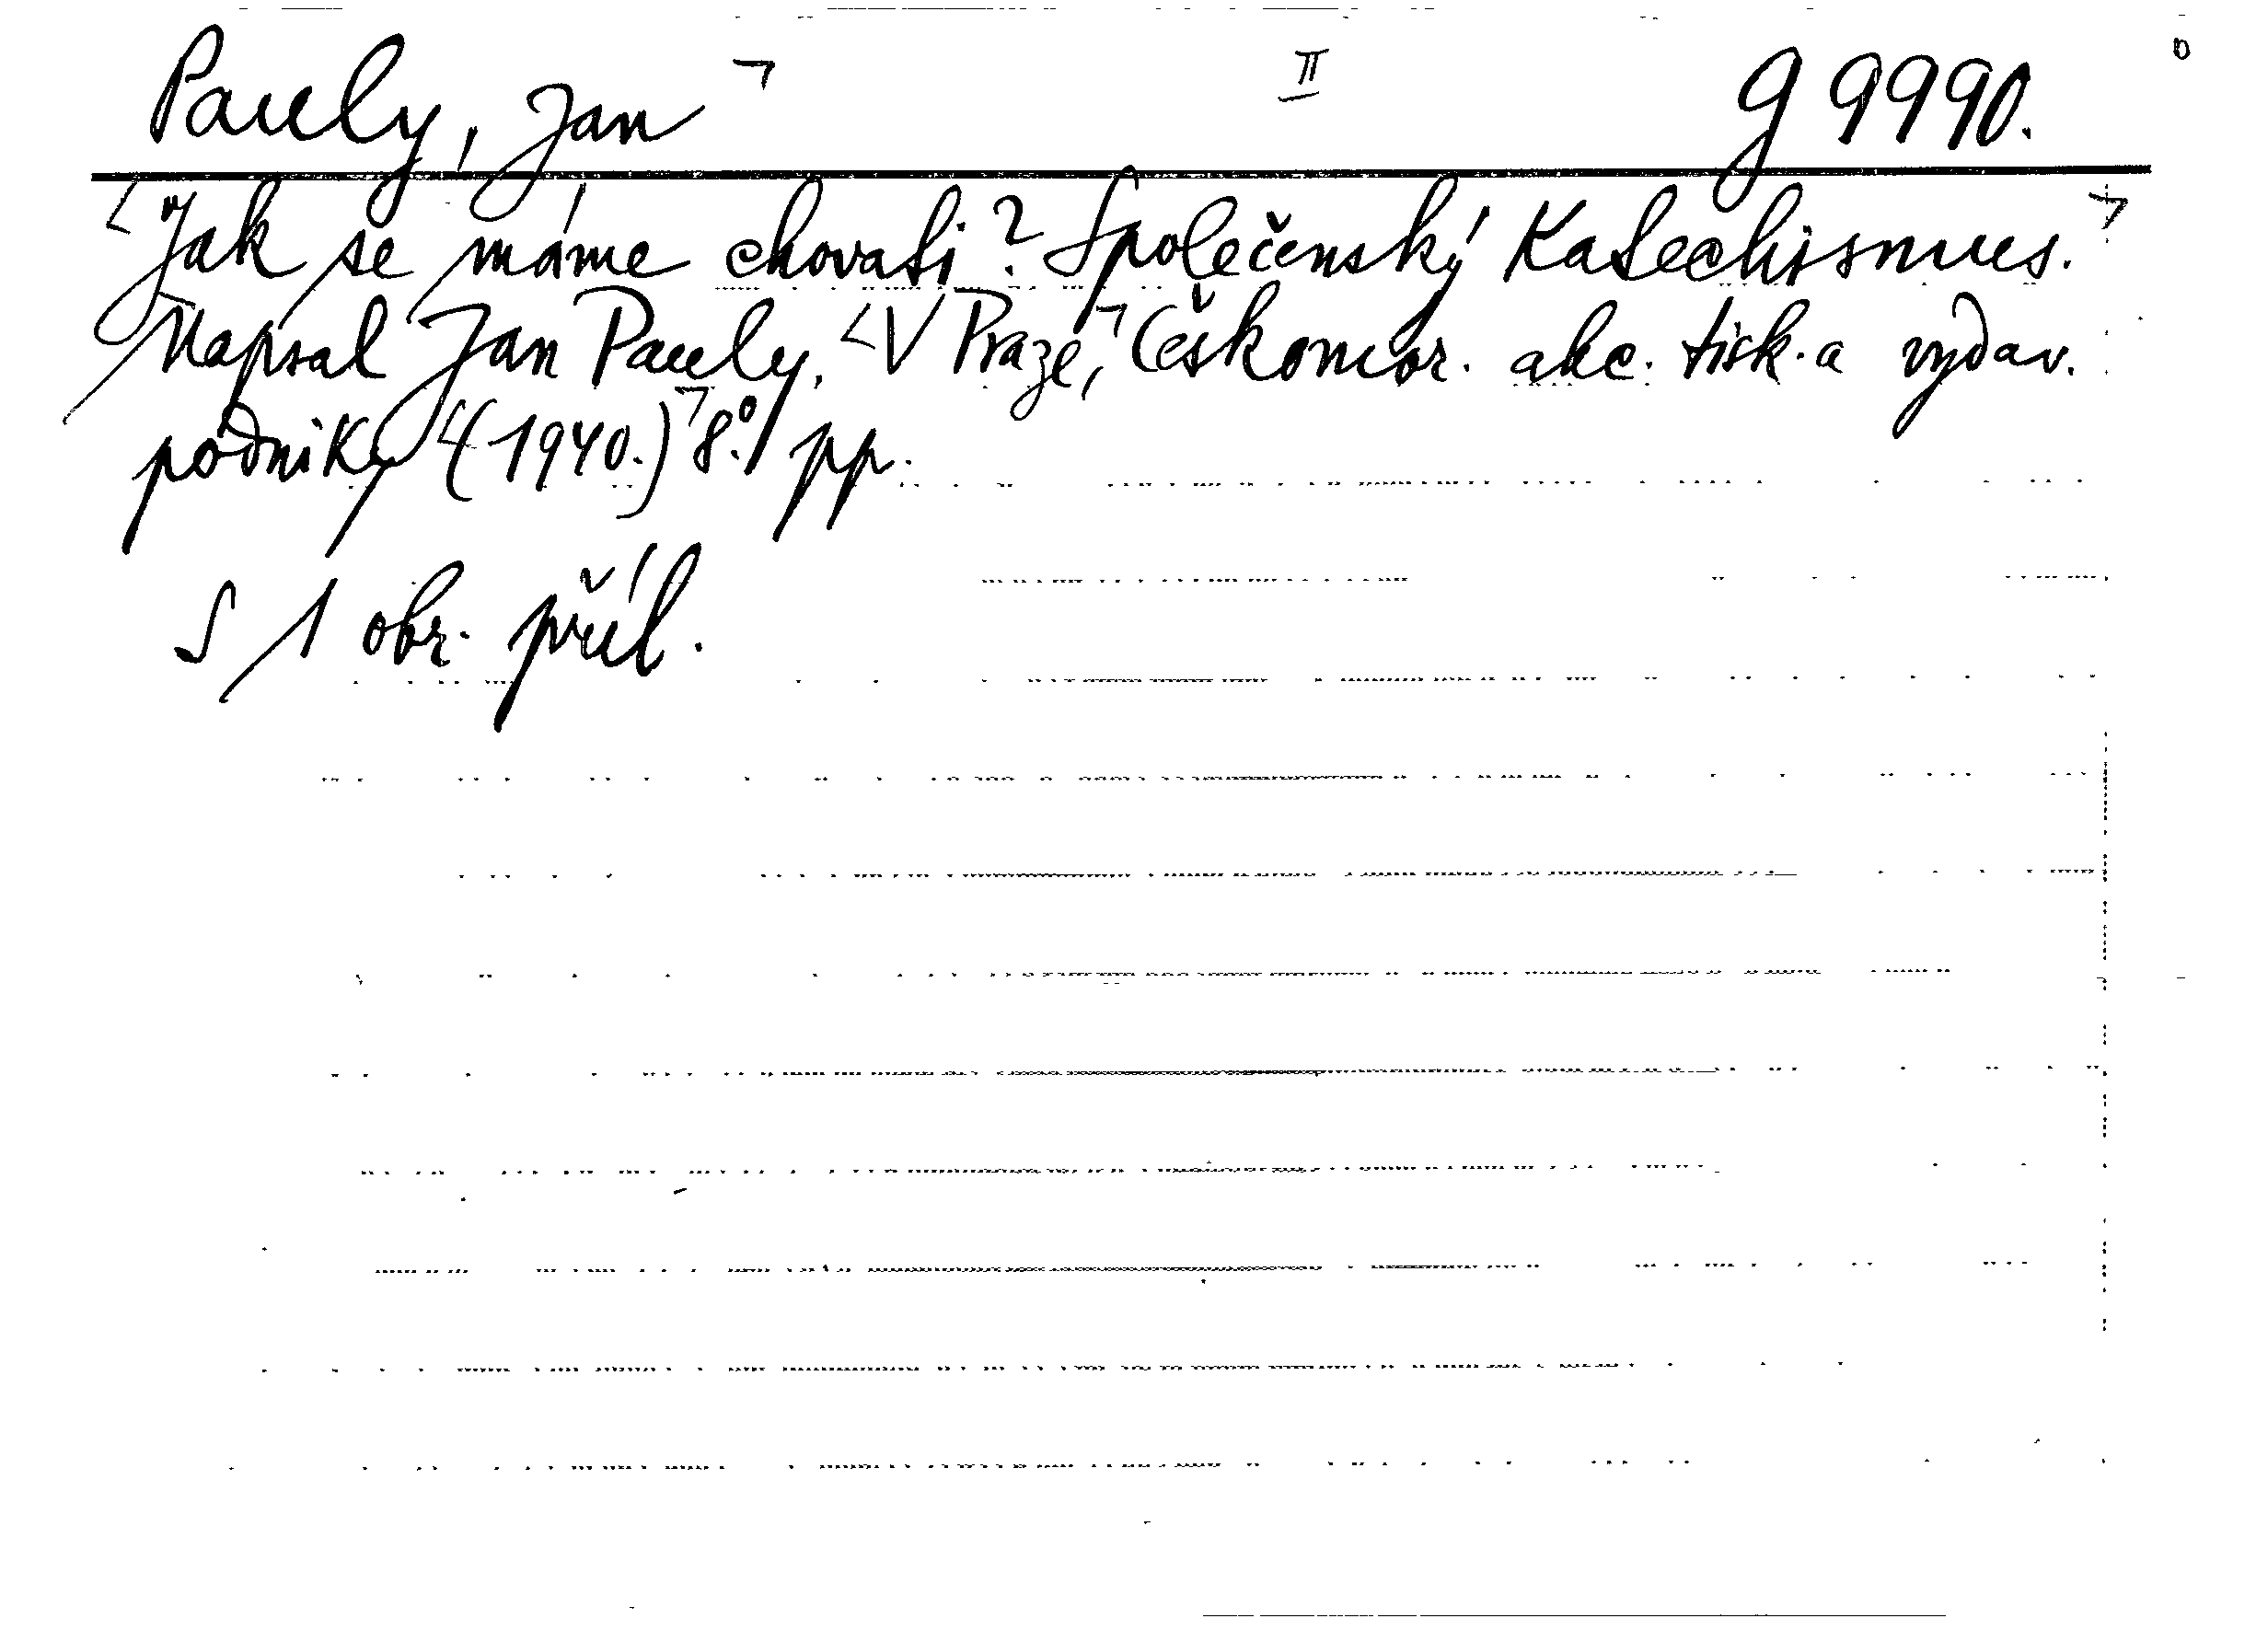 Pauly, Jan II g 9990.
Jak se máme chovati? Společenský Katechismus.
Napsal Jan Pauly. V Praze, Českomor. akc. tisk. a vydav.
podniky (1940.) 8.° pp.
S 1 obr. příl.